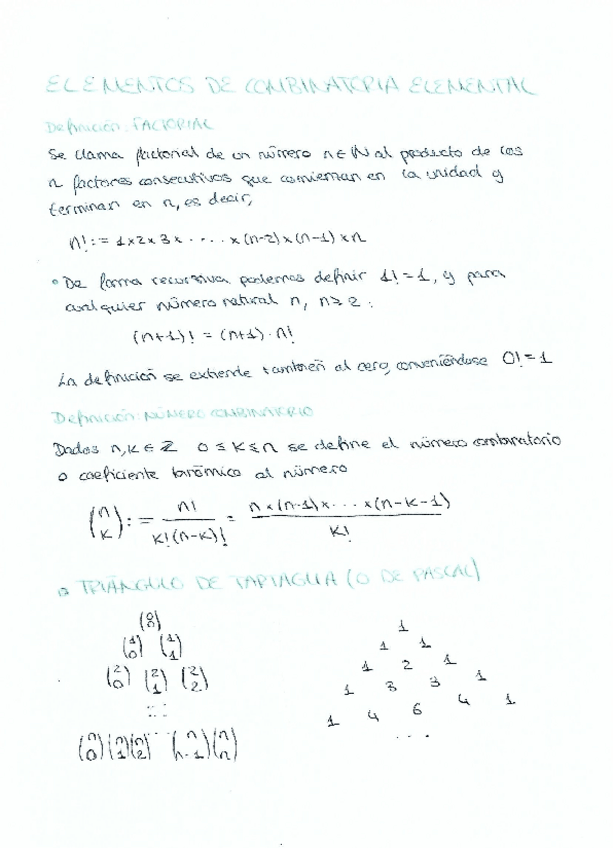 ELEMENTOS DE COMBINATORIA ELEMENTAL
Definición: FACTORIAL
Se llama factorial de un número n ∈ ℕ al producto de los
n factores consecutivos que comienzan en la unidad y
terminan en n, es decir,
n! := 1×2×3× ····· ×(n-2)×(n-1)×n
• De forma recursiva podemos definir 1! = 1, y para
cualquier número natural n, n ≥ 2:
(n+1)! = (n+1)·n!
La definición se extiende también al cero, conveniéndose 0! = 1
Definición: NÚMERO COMBINATORIO
Dados n, k ∈ ℤ 0 ≤ k ≤ n se define el número combinatorio
o coeficiente binómico al número
(n k) := n! / k!(n-k)! = n×(n-1)×...×(n-k-1) / k!
TRIÁNGULO DE TARTAGLIA (O DE PASCAL)
(0 0)
(1 0) (1 1)
(2 0) (2 1) (2 2)
: :
(n 0) (n 1) (n 2) ... (n n-1) (n n)
1
1 1
1 2 1
1 3 3 1
1 4 6 4 1
...